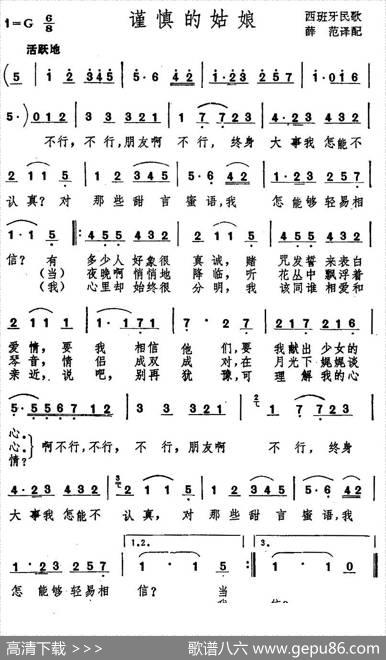 1=G 6/8 谨慎的姑娘 西班牙民歌
活跃地 薛 范译配
(5 | 1·2 345 | 5·6 42 | 1·23 257 | 1·51 |
5·)012 | 3 3 321 | 1 7 723 | 4·23 432 |
不行，不行，朋友啊 不行， 终身 大事我 怎能不
2 1 1 5 | 1·2 345 | 5·6 432 | 1·23 257 |
认真？对 那些 甜言 蜜语，我 怎能够轻易相
1·1 5 :432 432 | 2 1 1 5 | 4·23 432 |
信？ 有 多少人 好象很 真诚，赌 咒发誓 来表白
(当) 夜晚啊 悄悄地 降临，听 花丛中 飘浮着
(我) 心里却 始终很 分明，我 该同谁 相爱和
2 1 1 1 | 1· 171 | 2 1 1 7 | 217 216 |
爱情，要 我 相信 他们，要 我献出 少女的
琴音，情 侣 成双 成对，在 月光下 娓娓谈
亲近，说 吧，别再 犹豫，可 理解 我的心
5·5567712 | 3 3 321 | 1 7 723 |
心。
心。 啊不行，不行， 不 行，朋友啊 不行， 终身
情？
4·23 432 | 2 1 1 5 | 1·2 345 | 5·6 432 |
大事我怎能不 认真，对 那些 甜言 蜜语，我
1.2. 3.
1·23 257 | 1·1 5 :‖ 1·1 0 ‖
怎 能够 轻易相 信？ 当
我 信？
高清下载 >>> 歌谱八六 www.gepu86.com